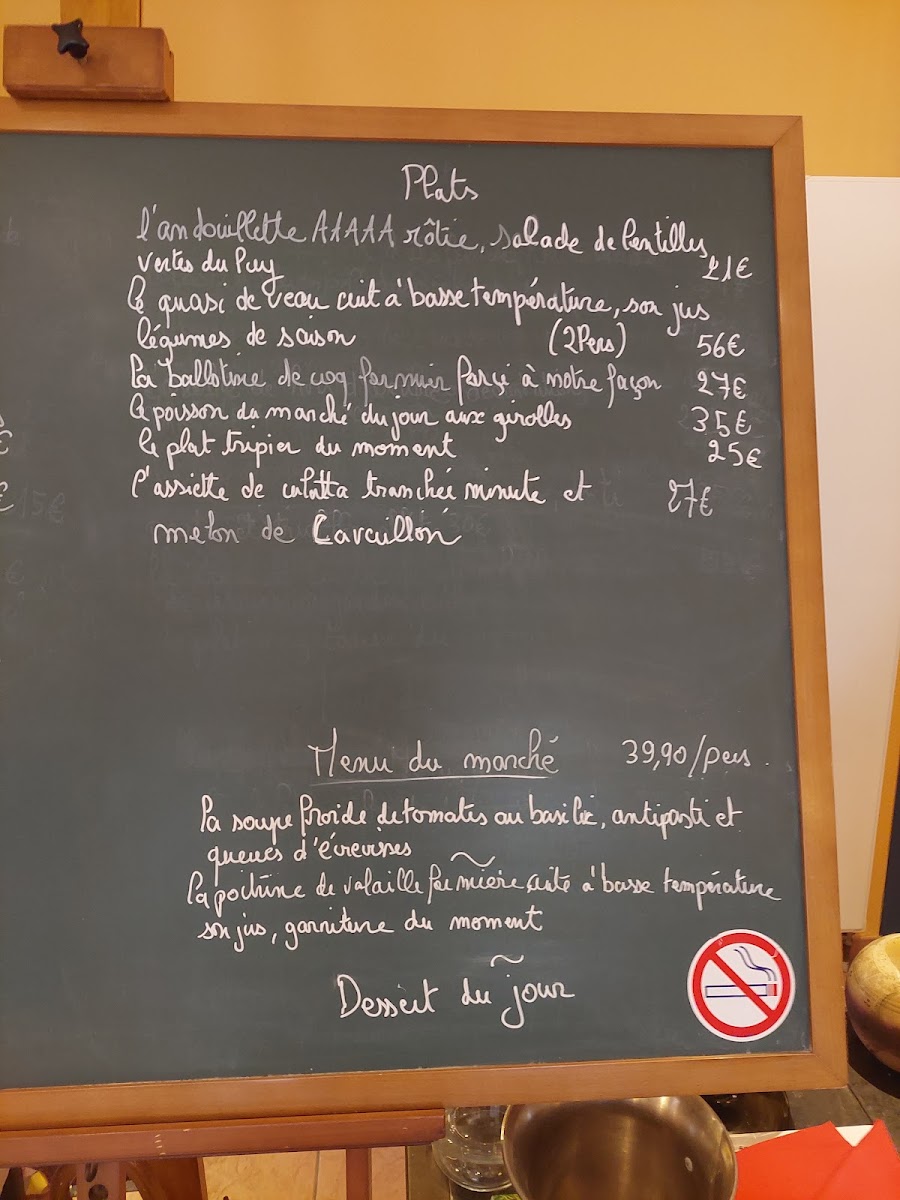 Plats
l'andouillette AAAAA rôtie, salade de lentilles
vertes du Puy 21€
le quasi de veau cuit à basse température, son jus
légumes de saison (2Pers) 56€
la ballotine de coq fermier farçi à notre façon 27€
le poisson du marché du jour aux girolles 35€
le plat tripier du moment 25€
l'assiette de culatta tranchée minute et 27€
melon de Cavaillon
Menu du marché 39,90/pers
la soupe froide de tomates au basilic, antipasti et
queues d'écrevisses
la poitrine de volaille fermière cuite à basse température
son jus, garniture du moment
Dessert du jour
€
€ 15€
€